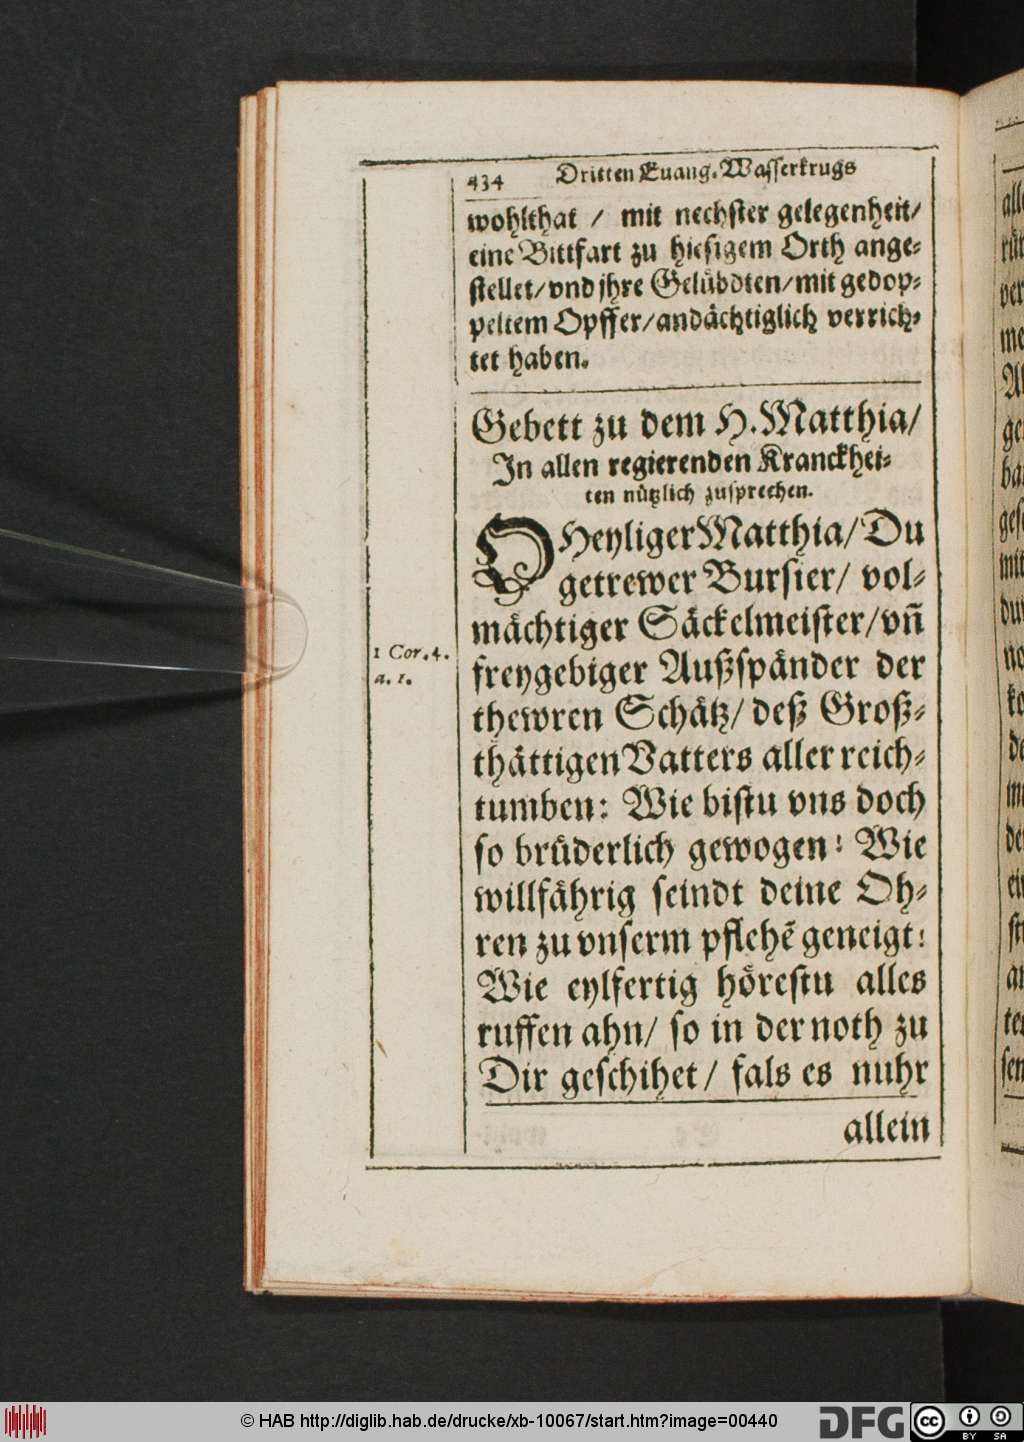 434 Dritten Euang. Wasserkrugs
wohlthat / mit nechster gelegenheit/
eine Bittfart zu hiesigem Orth ange-
stellet/vnd jhre Gelübdten/mit gedop-
peltem Opffer/andächtiglich verrich-
tet haben.
Gebett zu dem H. Matthia/
In allen regierenden Kranckhei-
ten nützlich zusprechen.
O Heyliger Matthia/ Du
getrewer Bursier/ vol-
mächtiger Säckelmeister/vñ
freygebiger Außspänder der
thewren Schätz/ deß Groß-
thättigen Vatters aller reich-
tumben: Wie bistu vns doch
so brüderlich gewogen: Wie
willfährig seindt deine Oh-
ren zu vnserm pflehẽ geneigt:
Wie eylfertig hörestu alles
ruffen ahn/ so in der noth zu
Dir geschihet/ fals es nuhr
allein
1 Cor. 4.
a. 1.
© HAB http://diglib.hab.de/drucke/xb-10067/start.htm?image=00440
DFG
cc
BY SA